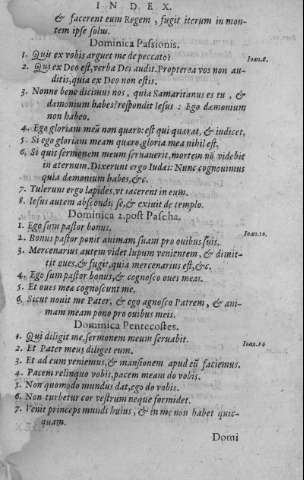 INDEX.
& facerent eum Regem, fugit iterum in mon-
tem ipse solus.
Dominica Passionis.
1. Quis ex vobis arguet me de peccato? Ioan.8.
2. Qui ex Deo est, verba Dei audit. Propterea vos non au-
ditis, quia ex Deo non estis.
3. Nonne bene dicimus nos, quia Samaritanus es tu, &
dæmonium habes? respondit Iesus: Ego dæmonium
non habeo.
4. Ego gloriam meã non quæro: est qui quærat, & iudicet,
5. Si ego gloriam meam quæro gloria mea nihil est,
6. Si quis sermonem meum seruauerit, mortem nõ videbit
in æternum. Dixerunt ergo Iudæi: Nunc cognouimus
quia dæmonium habes, &c.
7. Tulerunt ergo lapides, vt iacerent in eum.
8. Iesus autem abscondit se, & exiuit de templo.
Dominica 2. post Pascha.
1. Ego sum pastor bonus. Ioan.10.
2. Bonus pastor ponit animam suam pro ouibus suis.
3. Mercenarius autem videt lupum venientem, & dimit-
tit oues, & fugit, quia mercenarius est, &c.
4. Ego sum pastor bonus, & cognosco oues meas.
5. Et oues meæ cognoscunt me.
6. Sicut nouit me Pater, & ego agnosco Patrem, & ani-
mam meam pono pro ouibus meis.
Dominica Pentecostes.
1. Qui diligit me, sermonem meum seruabit.
2. Et Pater meus diliget eum.
3. Et ad eum veniemus, & mansionem apud eũ faciemus.
4. Pacem relinquo vobis, pacem meam do vobis.
5. Non quomodo mundus dat, ego do vobis.
6. Non turbetur cor vestrum neque formidet.
7. Venit princeps mundi huius, & in me non habet quic-
quam.
Domi